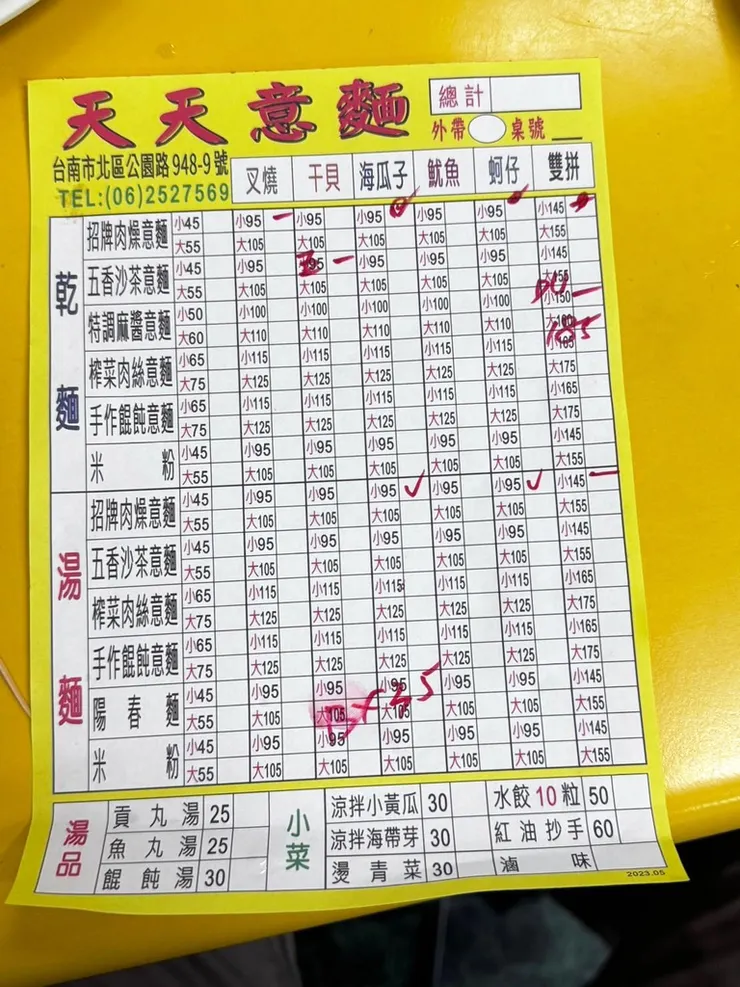 天天意麵
總計
外帶 桌號
台南市北區公園路948-9號
TEL:(06)2527569
叉燒 干貝 海瓜子 魷魚 蚵仔 雙拼
乾麵
招牌肉燥意麵 小45 小95 小95 小95 小95 小95 小145
大55 大105 大105 大105 大105 大105 大155
五香沙茶意麵 小45 小95 小95 小95 小95 小95 小145
大55 大105 大105 大105 大105 大105 大155
特調麻醬意麵 小50 小100 小100 小100 小100 小100 小150
大60 大110 大110 大110 大110 大110 大160
185
榨菜肉絲意麵 小65 小115 小115 小115 小115 小115 小165
大75 大125 大125 大125 大125 大125 大175
手作餛飩意麵 小65 小115 小115 小115 小115 小115 小165
大75 大125 大125 大125 大125 大125 大175
米粉 小45 小95 小95 小95 小95 小95 小145
大55 大105 大105 大105 大105 大105 大155
湯麵
招牌肉燥意麵 小45 小95 小95 小95 小95 小95 小145
大55 大105 大105 大105 大105 大105 大155
五香沙茶意麵 小45 小95 小95 小95 小95 小95 小145
大55 大105 大105 大105 大105 大105 大155
榨菜肉絲意麵 小65 小115 小115 小115 小115 小115 小165
大75 大125 大125 大125 大125 大125 大175
手作餛飩意麵 小65 小115 小115 小115 小115 小115 小165
大75 大125 大125 大125 大125 大125 大175
陽春麵 小45 小95 小95 小95 小95 小95 小145
大55 大105 大105 大105 大105 大105 大155
米粉 小45 小95 小95 小95 小95 小95 小145
大55 大105 大105 大105 大105 大105 大155
湯品
貢丸湯 25
魚丸湯 25
餛飩湯 30
小菜
涼拌小黃瓜 30 水餃10粒 50
涼拌海帶芽 30 紅油抄手 60
燙青菜 30 滷味
2023.05